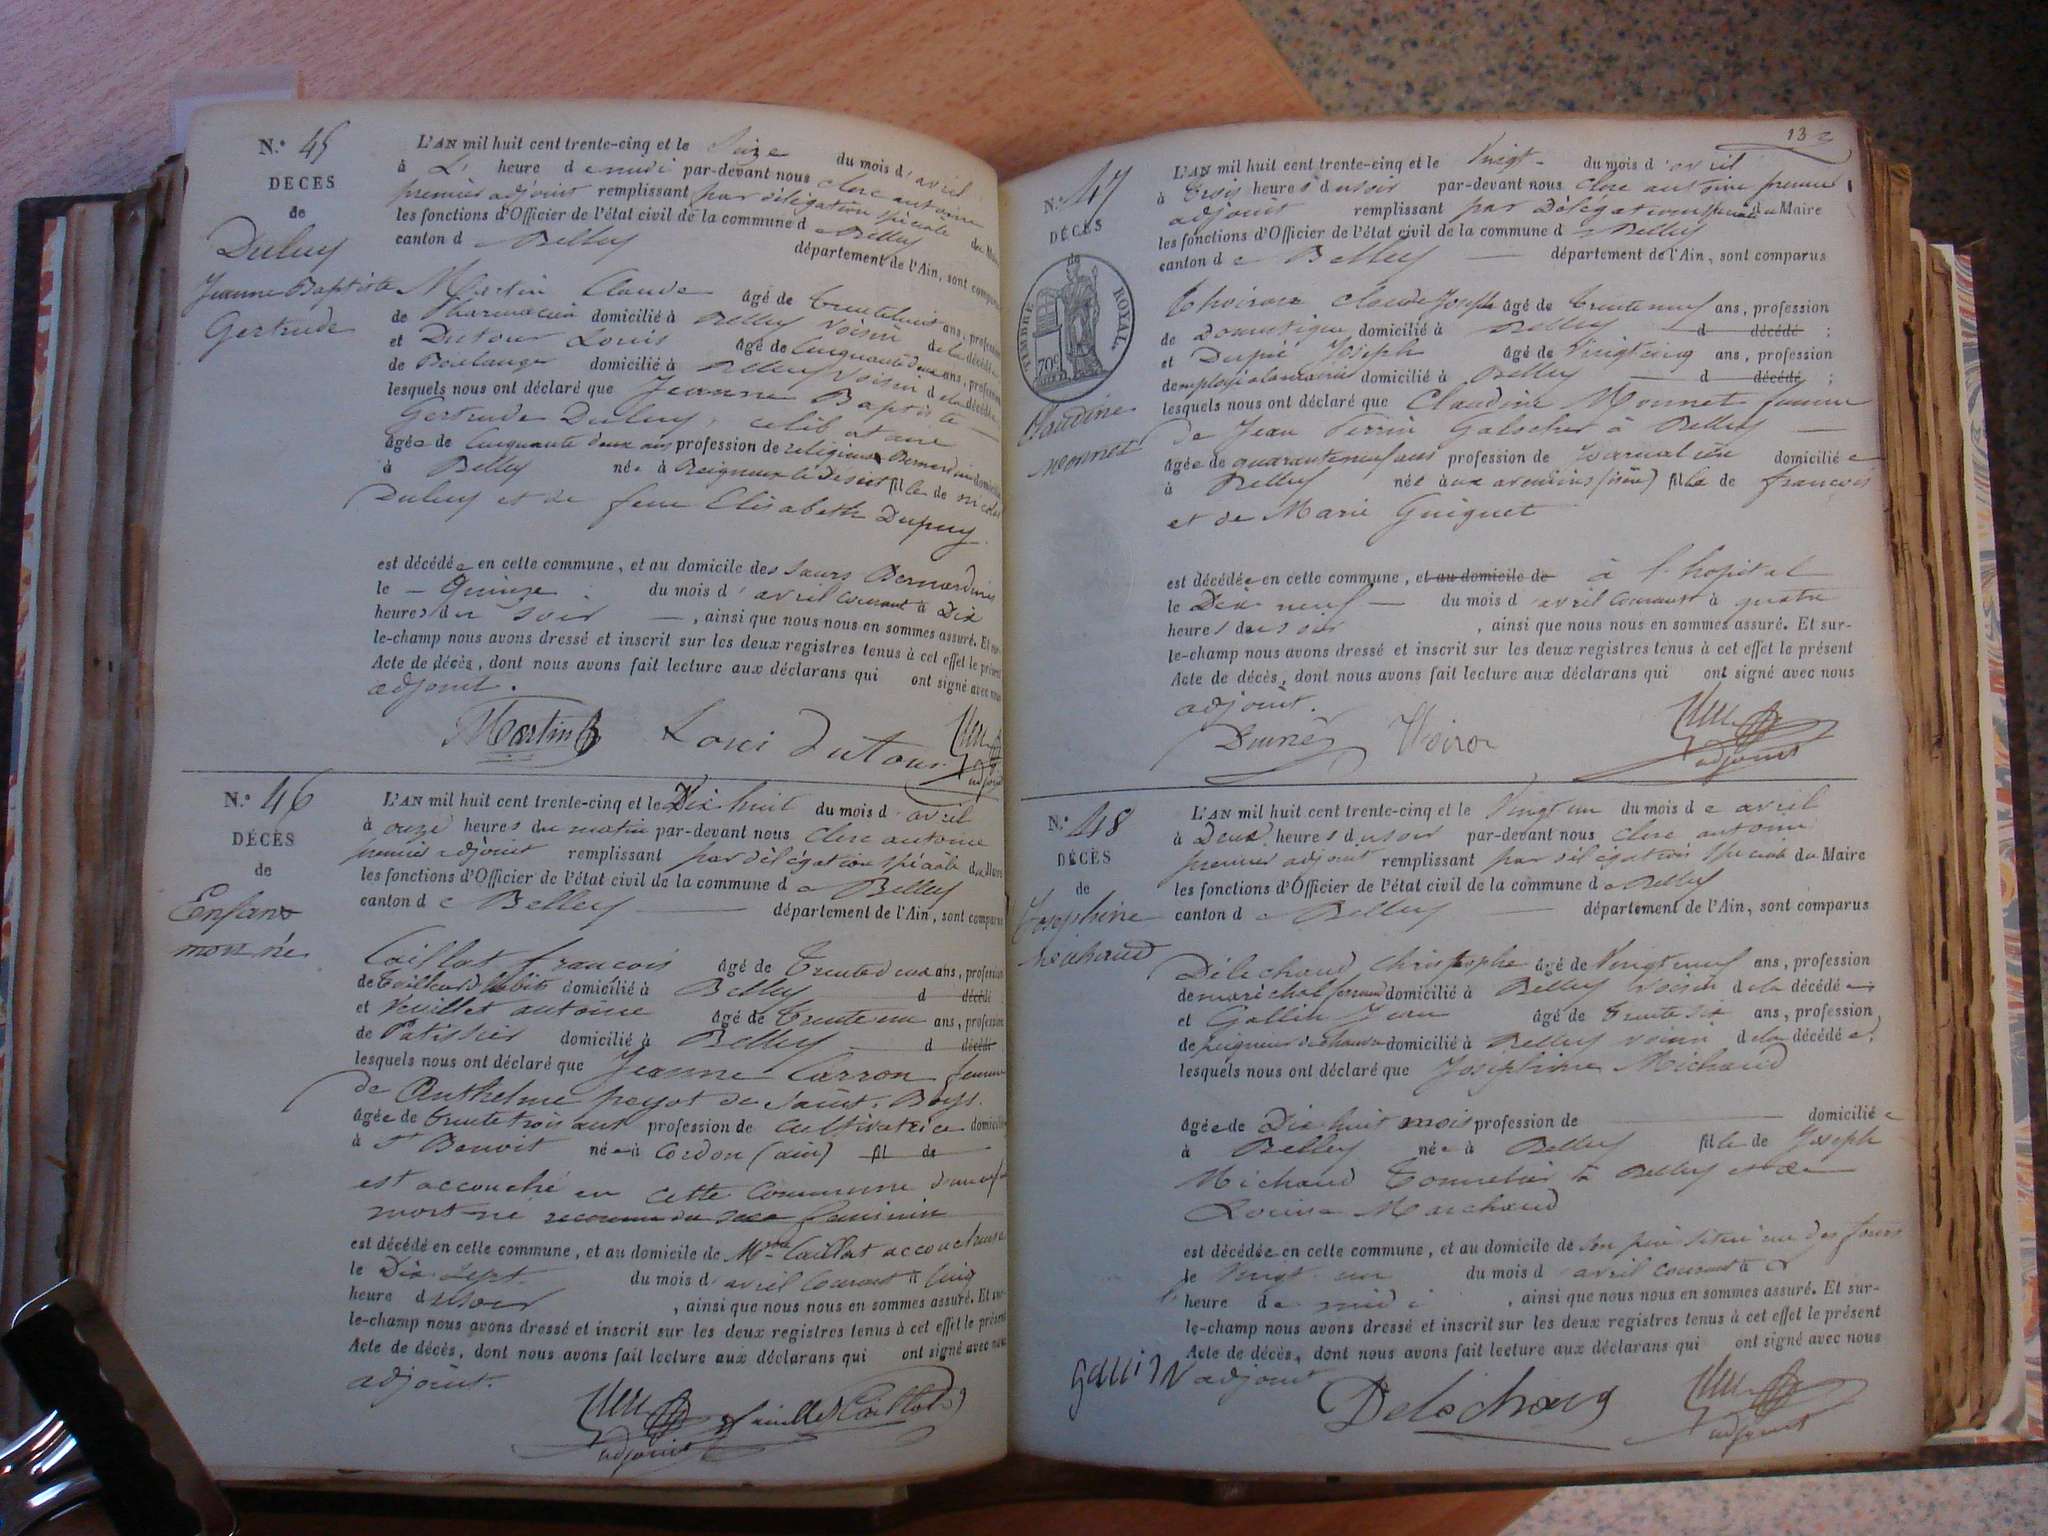 N.° 45
DÉCÈS
de
Duluy
Jeanne Baptiste
Gertrude
L'AN mil huit cent trente-cinq et le Seize du mois d'avril
à heure de midi par-devant nous Clerc antoine
premier adjoint remplissant par délégation spéciale du Maire
les fonctions d'Officier de l'état civil de la commune de Belley
canton de Belley département de l'Ain, sont comparus
Martin Claude âgé de trente huit ans, profession
de Pharmacien domicilié à Belley Voisin de la décédée
et Dutour Louis âgé de Cinquante deux ans, profession
de Boulanger domicilié à Belley Voisin de la décédée
lesquels nous ont déclaré que Jeanne Baptiste
Gertrude Duluy, célibataire
âgée de Cinquante deux ans profession de religieuse Bernardine domiciliée
à Belley née à fille de
Duluy et de feue Elisabeth Dupuy
est décédée en cette commune, et au domicile des sœurs Bernardines
le Quinze du mois d'avril courant à Dix
heures du soir, ainsi que nous nous en sommes assuré. Et sur-
le-champ nous avons dressé et inscrit sur les deux registres tenus à cet effet le présent
Acte de décès, dont nous avons fait lecture aux déclarans qui ont signé avec nous
adjoint.
Martin Loui dutour
adjoint
N.° 46
DÉCÈS
de
Enfant
mort né
L'AN mil huit cent trente-cinq et le Dix huit du mois d'avril
à onze heures du matin par-devant nous Clerc antoine
premier adjoint remplissant par délégation spéciale du Maire
les fonctions d'Officier de l'état civil de la commune de Belley
canton de Belley département de l'Ain, sont comparus
Caillat françois âgé de trente deux ans, profession
de tailleur d'habits domicilié à Belley d décédé
et Veuillet antoine âgé de trente un ans, profession
de Patissier domicilié à Belley d décédé
lesquels nous ont déclaré que Jeanne Carron femme
de Anthelme peyot de Saint. Boys.
âgée de trente trois ans profession de cultivatrice domiciliée
à St Benoit née à Cordon (ain) fil de
est accouché en cette Commune d'un enfant
mort né reconnu du sexe féminin
est décédé en cette commune, et au domicile de Mme Caillat accoucheuse
le Dix sept du mois d'avril courant à cinq
heure du soir, ainsi que nous nous en sommes assuré. Et sur-
le-champ nous avons dressé et inscrit sur les deux registres tenus à cet effet le présent
Acte de décès, dont nous avons fait lecture aux déclarans qui ont signé avec nous
adjoint.
Caillat
adjoint
132
N.° 47
DÉCÈS
de
TIMBRE ROYAL
70c
Claudine
monnet
L'AN mil huit cent trente-cinq et le Vingt du mois d'avril
à trois heures du soir par-devant nous Clerc antoine premier
adjoint remplissant par Délégation spéciale du Maire
les fonctions d'Officier de l'état civil de la commune de Belley
canton de Belley département de l'Ain, sont comparus
Claude Joseph âgé de trente neuf ans, profession
de Domestique domicilié à Belley d décédé ;
et Joseph âgé de Vingt cinq ans, profession
domicilié à Belley d décédé ;
lesquels nous ont déclaré que Claudine Monnet femme
de Jean Perrin à Belley
âgée de quarante neuf ans profession de Journalière domiciliée
à Belley née aux avenières (isère) fille de françois
et de Marie Guiguet
est décédée en cette commune, et au domicile de à l'hopital
le Dix neuf du mois d'avril courant à quatre
heures du soir, ainsi que nous nous en sommes assuré. Et sur-
le-champ nous avons dressé et inscrit sur les deux registres tenus à cet effet le présent
Acte de décès, dont nous avons fait lecture aux déclarans qui ont signé avec nous
adjoint.
adjoint
N.° 48
DÉCÈS
de
Josephine
michaud
L'AN mil huit cent trente-cinq et le Vingt un du mois de avril
à Deux heures du soir par-devant nous Clerc antoine
premier adjoint remplissant par délégation spéciale du Maire
les fonctions d'Officier de l'état civil de la commune de Belley
canton de Belley département de l'Ain, sont comparus
Délechaud Christophe âgé de Vingt neuf ans, profession
de maréchal ferrant domicilié à Belley Voisin de la décédée
et Gallin Jean âgé de trente six ans, profession
de peigneur de chanvre domicilié à Belley voisin de la décédée;
lesquels nous ont déclaré que Josephine Michaud
âgée de Dix huit mois profession de domiciliée
à Belley née à Belley fille de Joseph
Michaud Tonnelier à Belley et de
Louise Marchand
est décédée en cette commune, et au domicile de son père situé rue des fours
le Vingt un du mois d'avril courant à
heure de midi, ainsi que nous nous en sommes assuré. Et sur-
le-champ nous avons dressé et inscrit sur les deux registres tenus à cet effet le présent
Acte de décès, dont nous avons fait lecture aux déclarans qui ont signé avec nous
adjoint
gallin Delechaud
adjoint